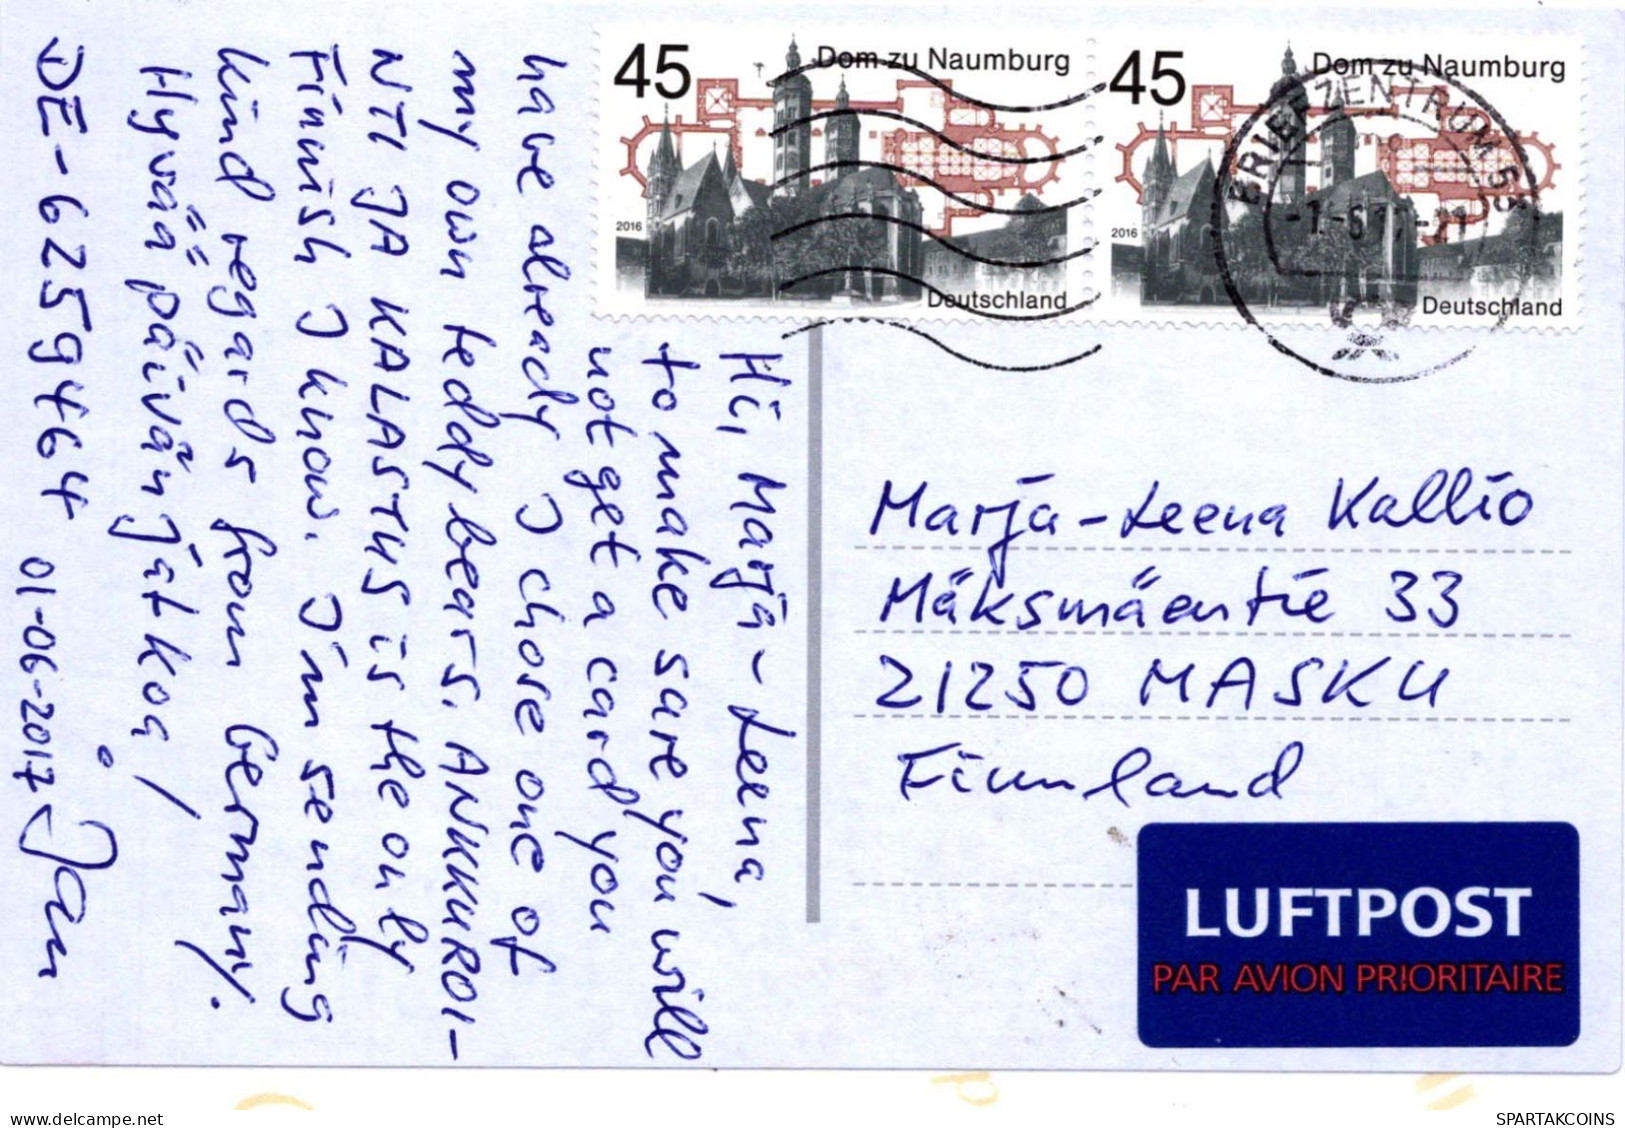 45 Dom zu Naumburg
2016
Deutschland
45 Dom zu Naumburg
2016
Deutschland
BRIEFZENTRUM 53
Hi, Marja-Leena,
to make sure you will
not get a card you
have already I chose one of
my own teddy bears. ANKKUROI-
NTI JA KALASTUS is the only
Finnish I know. I'm sending
kind regards from Germany.
Hyvää päivänjatkoa!
DE-6259464 01-06-2017 Jan
Marja-Leena Kallio
Mäksmäentie 33
21250 MASKU
Finnland
LUFTPOST
PAR AVION PRIORITAIRE
SPARTAKCOINS